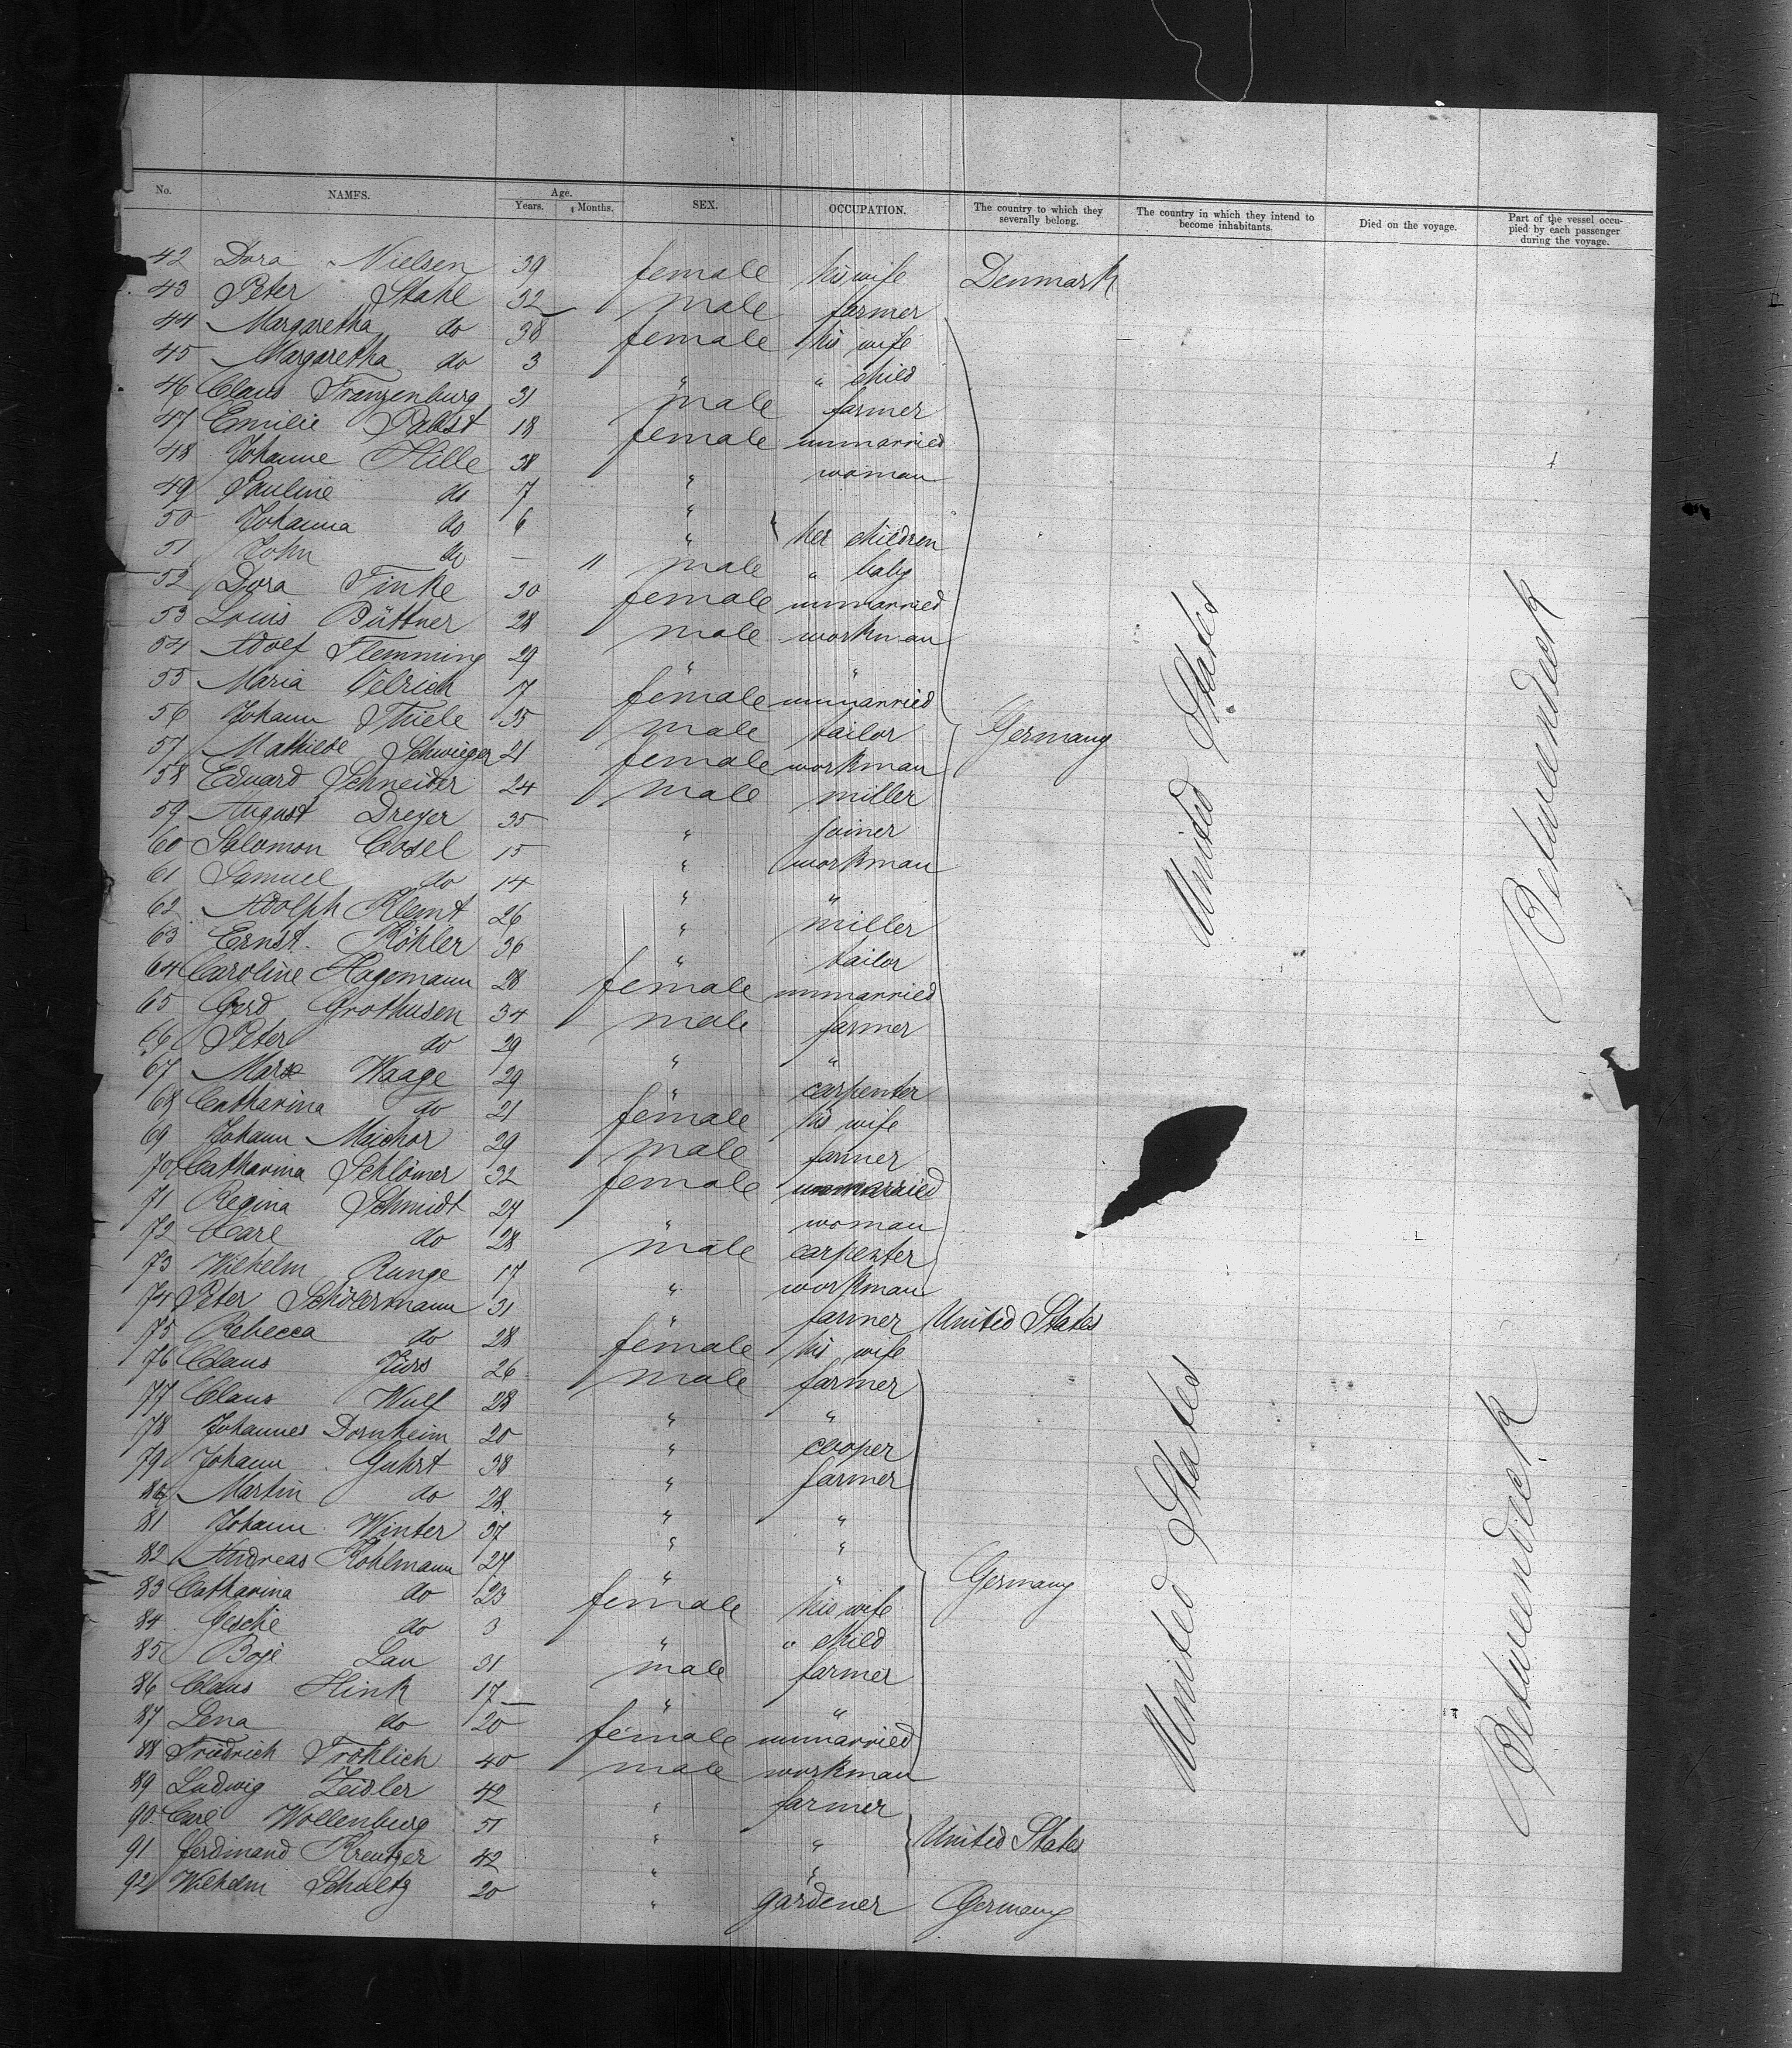 No. NAMES. Age. Years. Months. SEX. OCCUPATION. The country to which they severally belong. The country in which they intend to become inhabitants. Died on the voyage. Part of the vessel occupied by each passenger during the voyage.
42 Dora Nielsen 39 female his wife Denmark
43 Peter Stahl 32 male farmer
44 Margaretha do 38 female his wife
45 Margaretha do 3 " " child
46 Claus Franzenburg 31 male farmer
47 Emilie Pabst 18 female unmarried
48 Johanne Hille 38 " woman
49 Pauline do 7 "
50 Johanna do 6 " her children
51 John do — 11 male " baby
52 Dora Finke 30 female unmarried
53 Louis Büttner 28 male workman
54 Adolf Flemming 29 " "
55 Maria Velrich 17 female unmarried
56 Johann Thiele 35 male tailor Germany
57 Mathilde Schwieger 21 female workman
58 Eduard Schneider 24 male miller
59 August Dreyer 35 " joiner
60 Salomon Cosel 15 " workman
61 Samuel do 14 " "
62 Adolph Klemt 26 " miller
63 Ernst Köhler 36 " tailor
64 Caroline Hagemann 28 female unmarried
65 Gerd Grothusen 34 male farmer
66 Peter do 29 " "
67 Marx Waage 29 " carpenter
68 Catharina do 21 female his wife
69 Johann Maichor 29 male farmer
70 Catharina Schlömer 32 female unmarried
71 Regina Schmidt 27 " woman
72 Carl do 28 male carpenter
73 Wilhelm Runge 17 " workman
74 Peter Schölermann 31 " farmer United States
75 Rebecca do 28 female his wife
76 Claus Jürs 26 male farmer
77 Claus Wulf 28 " "
78 Johannes Dornheim 20 " cooper
79 Johann Guhrt 38 " farmer
80 Martin do 28 " "
81 Johann Winter 37 " "
82 Andreas Kohlmann 27 " "
83 Catharina do 23 female his wife Germany
84 Gesche do 3 " " child
85 Boje Lau 31 male farmer
86 Claus Hink 17 " "
87 Lena do 20 female unmarried
88 Friedrich Fröhlich 40 male workman
89 Ludwig Zeidler 42 " farmer
90 Carl Wollenburg 51 " " United States
91 Ferdinand Kreutzer 42 " "
92 Wilhelm Schultz 20 " gardener Germany
United States
Betweendeck
United States
Betweendeck